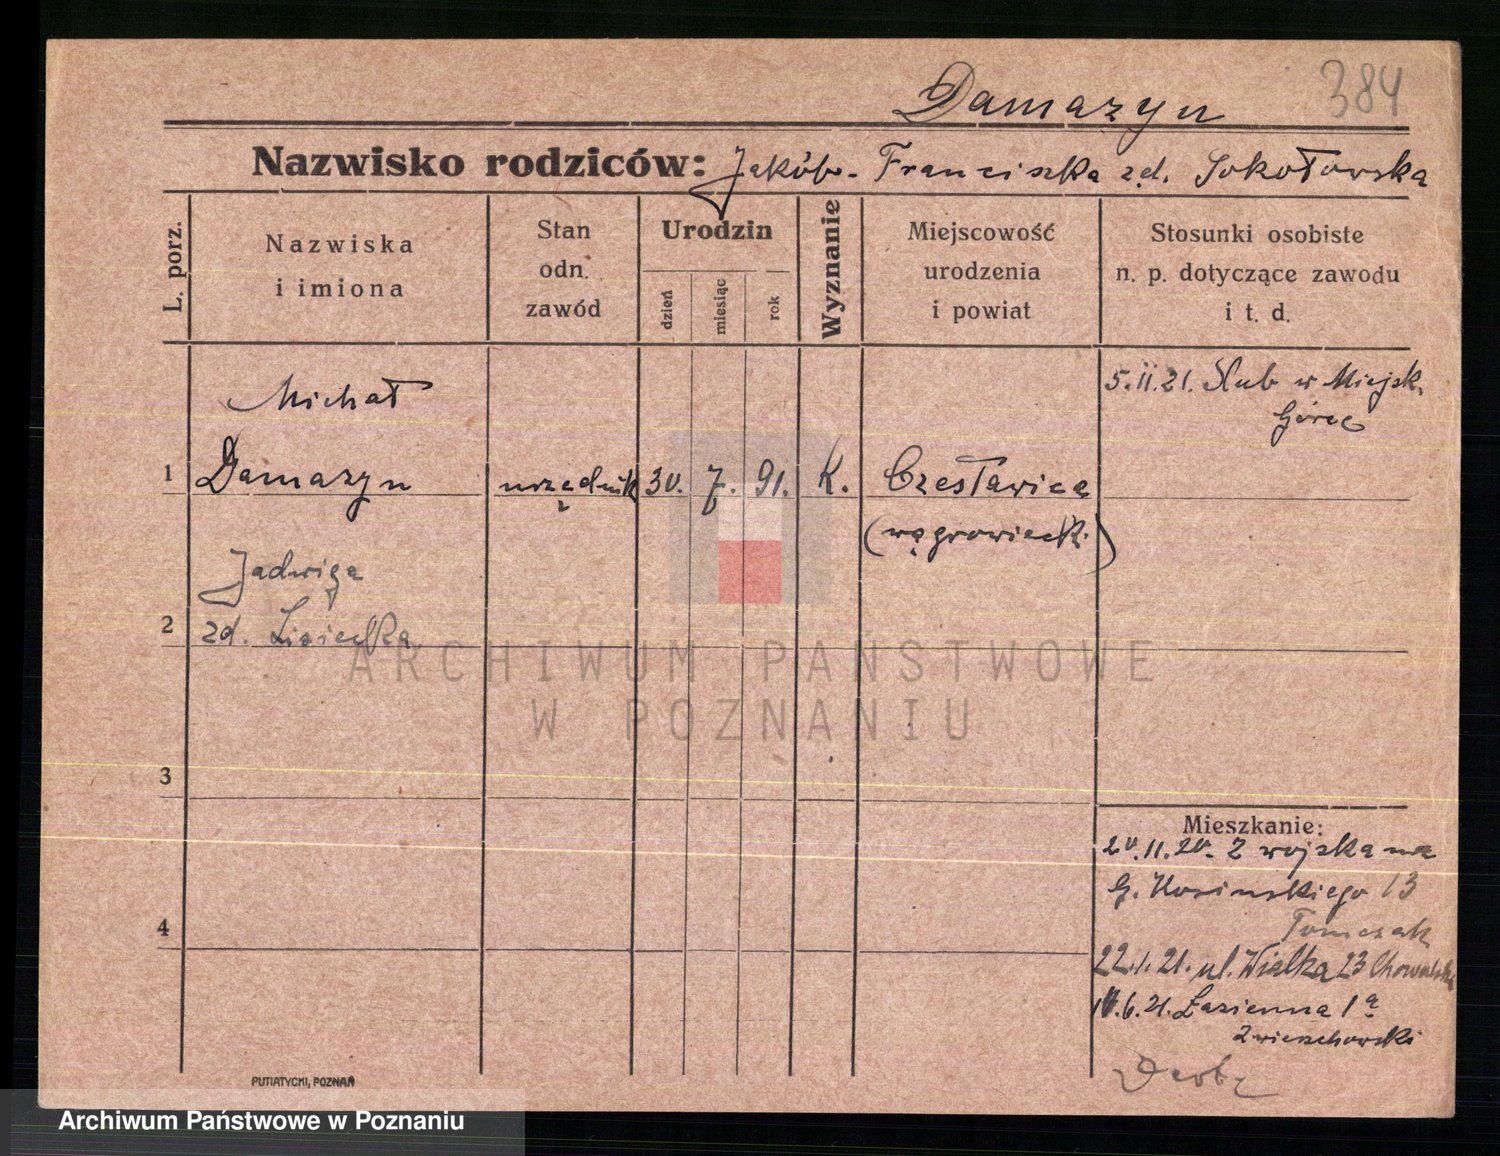 Damazyn 384
Nazwisko rodziców: Jakób - Franciszka zd. Sokołowska
L. porz.
Nazwiska
i imiona
Stan
odn.
zawód
Urodzin
dzień
miesiąc
rok
Wyznanie
Miejscowość
urodzenia
i powiat
Stosunki osobiste
n. p. dotyczące zawodu
i t. d.
Michał
5.II.21. Ślub w Miejsk.
Górce
1 Damazyn urzędnik 30. 7. 91. K. Czesławice
(wągrowiecki)
Jadwiga
2 zd. Lisiecka
ARCHIWUM PAŃSTWOWE
W POZNANIU
3
Mieszkanie:
20.11.20. Z wojska na
G. Kosinskiego 13
Tomczak
4
22.1.21. ul. Wielka 23
.6.21. Łazienna 1a
Zwierzchowski
PUTIATYCKI, POZNAŃ
Archiwum Państwowe w Poznaniu